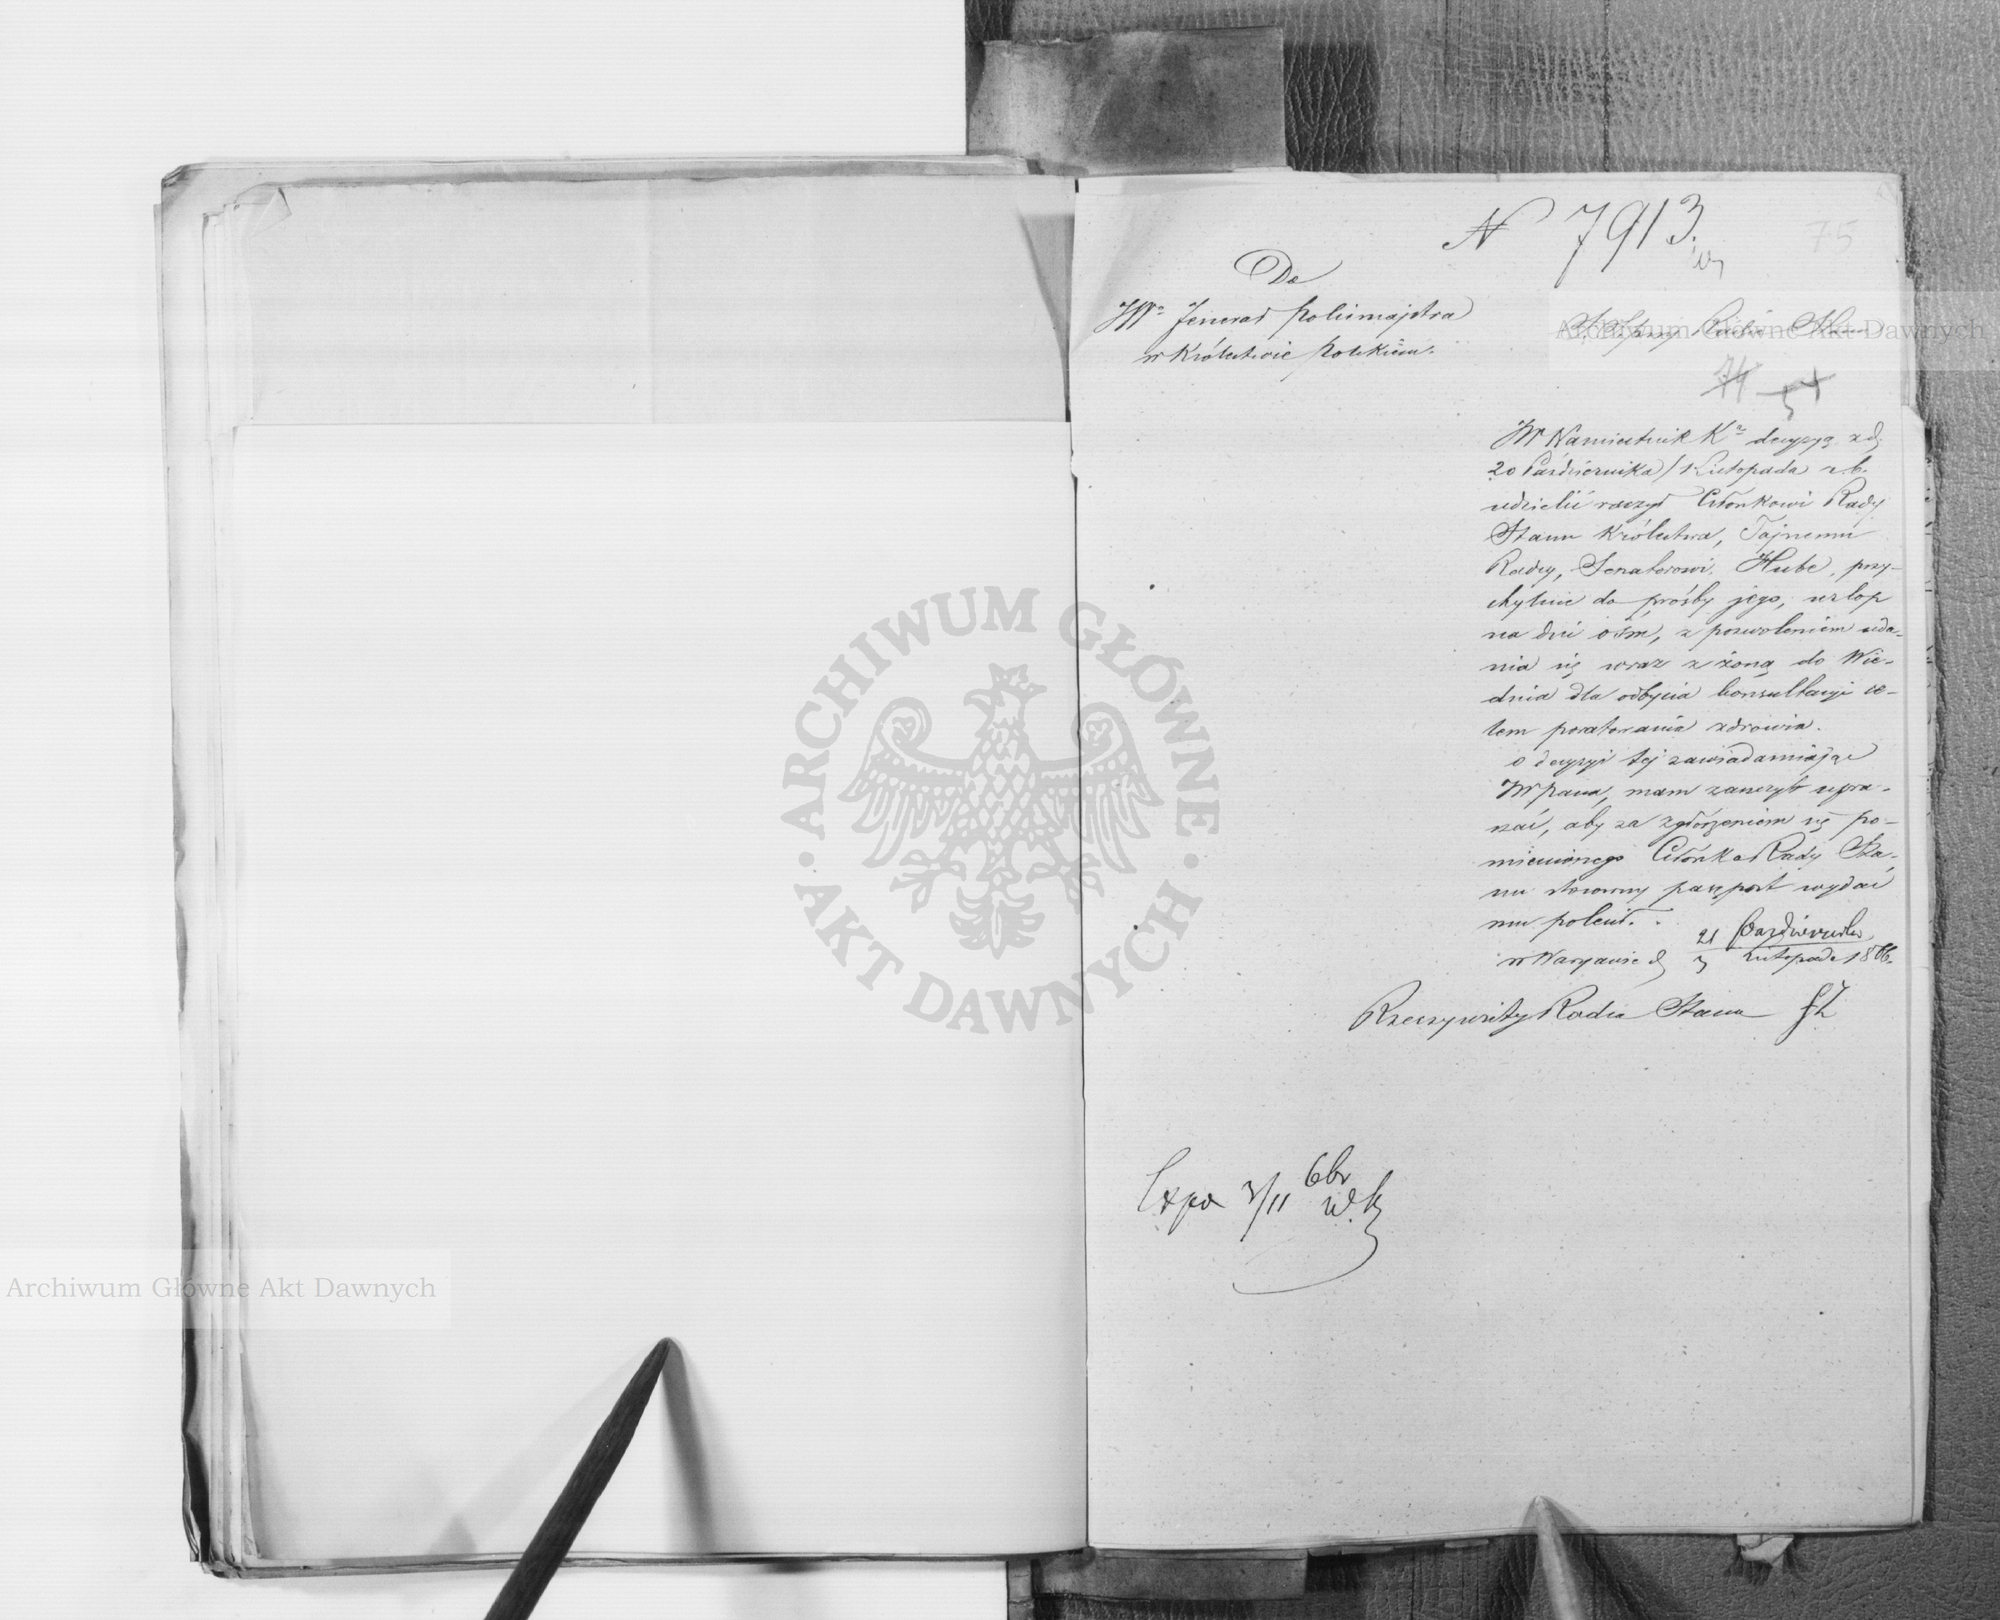 N 7913.
75
Do
JWo Jenerał Policmajstra
w Królestwie Polskiém.
S. S. przy Radzie Stanu
74
JW Namiestnik Ko decyzyą z d.
20 Października/1 Listopada r. b.
udzielić raczył Członkowi Rady
Stanu Królestwa, Tajnemu
Radcy, Senatorowi Hube, przy-
chylnie do prośby jego, urlop
na dni ośm, z pozwoleniem uda-
nia się wraz z żoną do Wie-
dnia dla odbycia konsultacyi ce-
lem poratowania zdrowia.
O decyzyi tej zawiadamiając
JWPana, mam zaszczyt upra-
szać, aby za zgłoszeniem się po-
mienionego Członka Rady Sta-
nu stosowny paszport wydać
mu polecił.
w Warszawie d. 21 Października/3 Listopada 1866.
Rzeczywisty Radca Stanu
Expd 3/11 66r
W. K.
ARCHIWUM GŁÓWNE AKT DAWNYCH
Archiwum Główne Akt Dawnych
Archiwum Główne Akt Dawnych